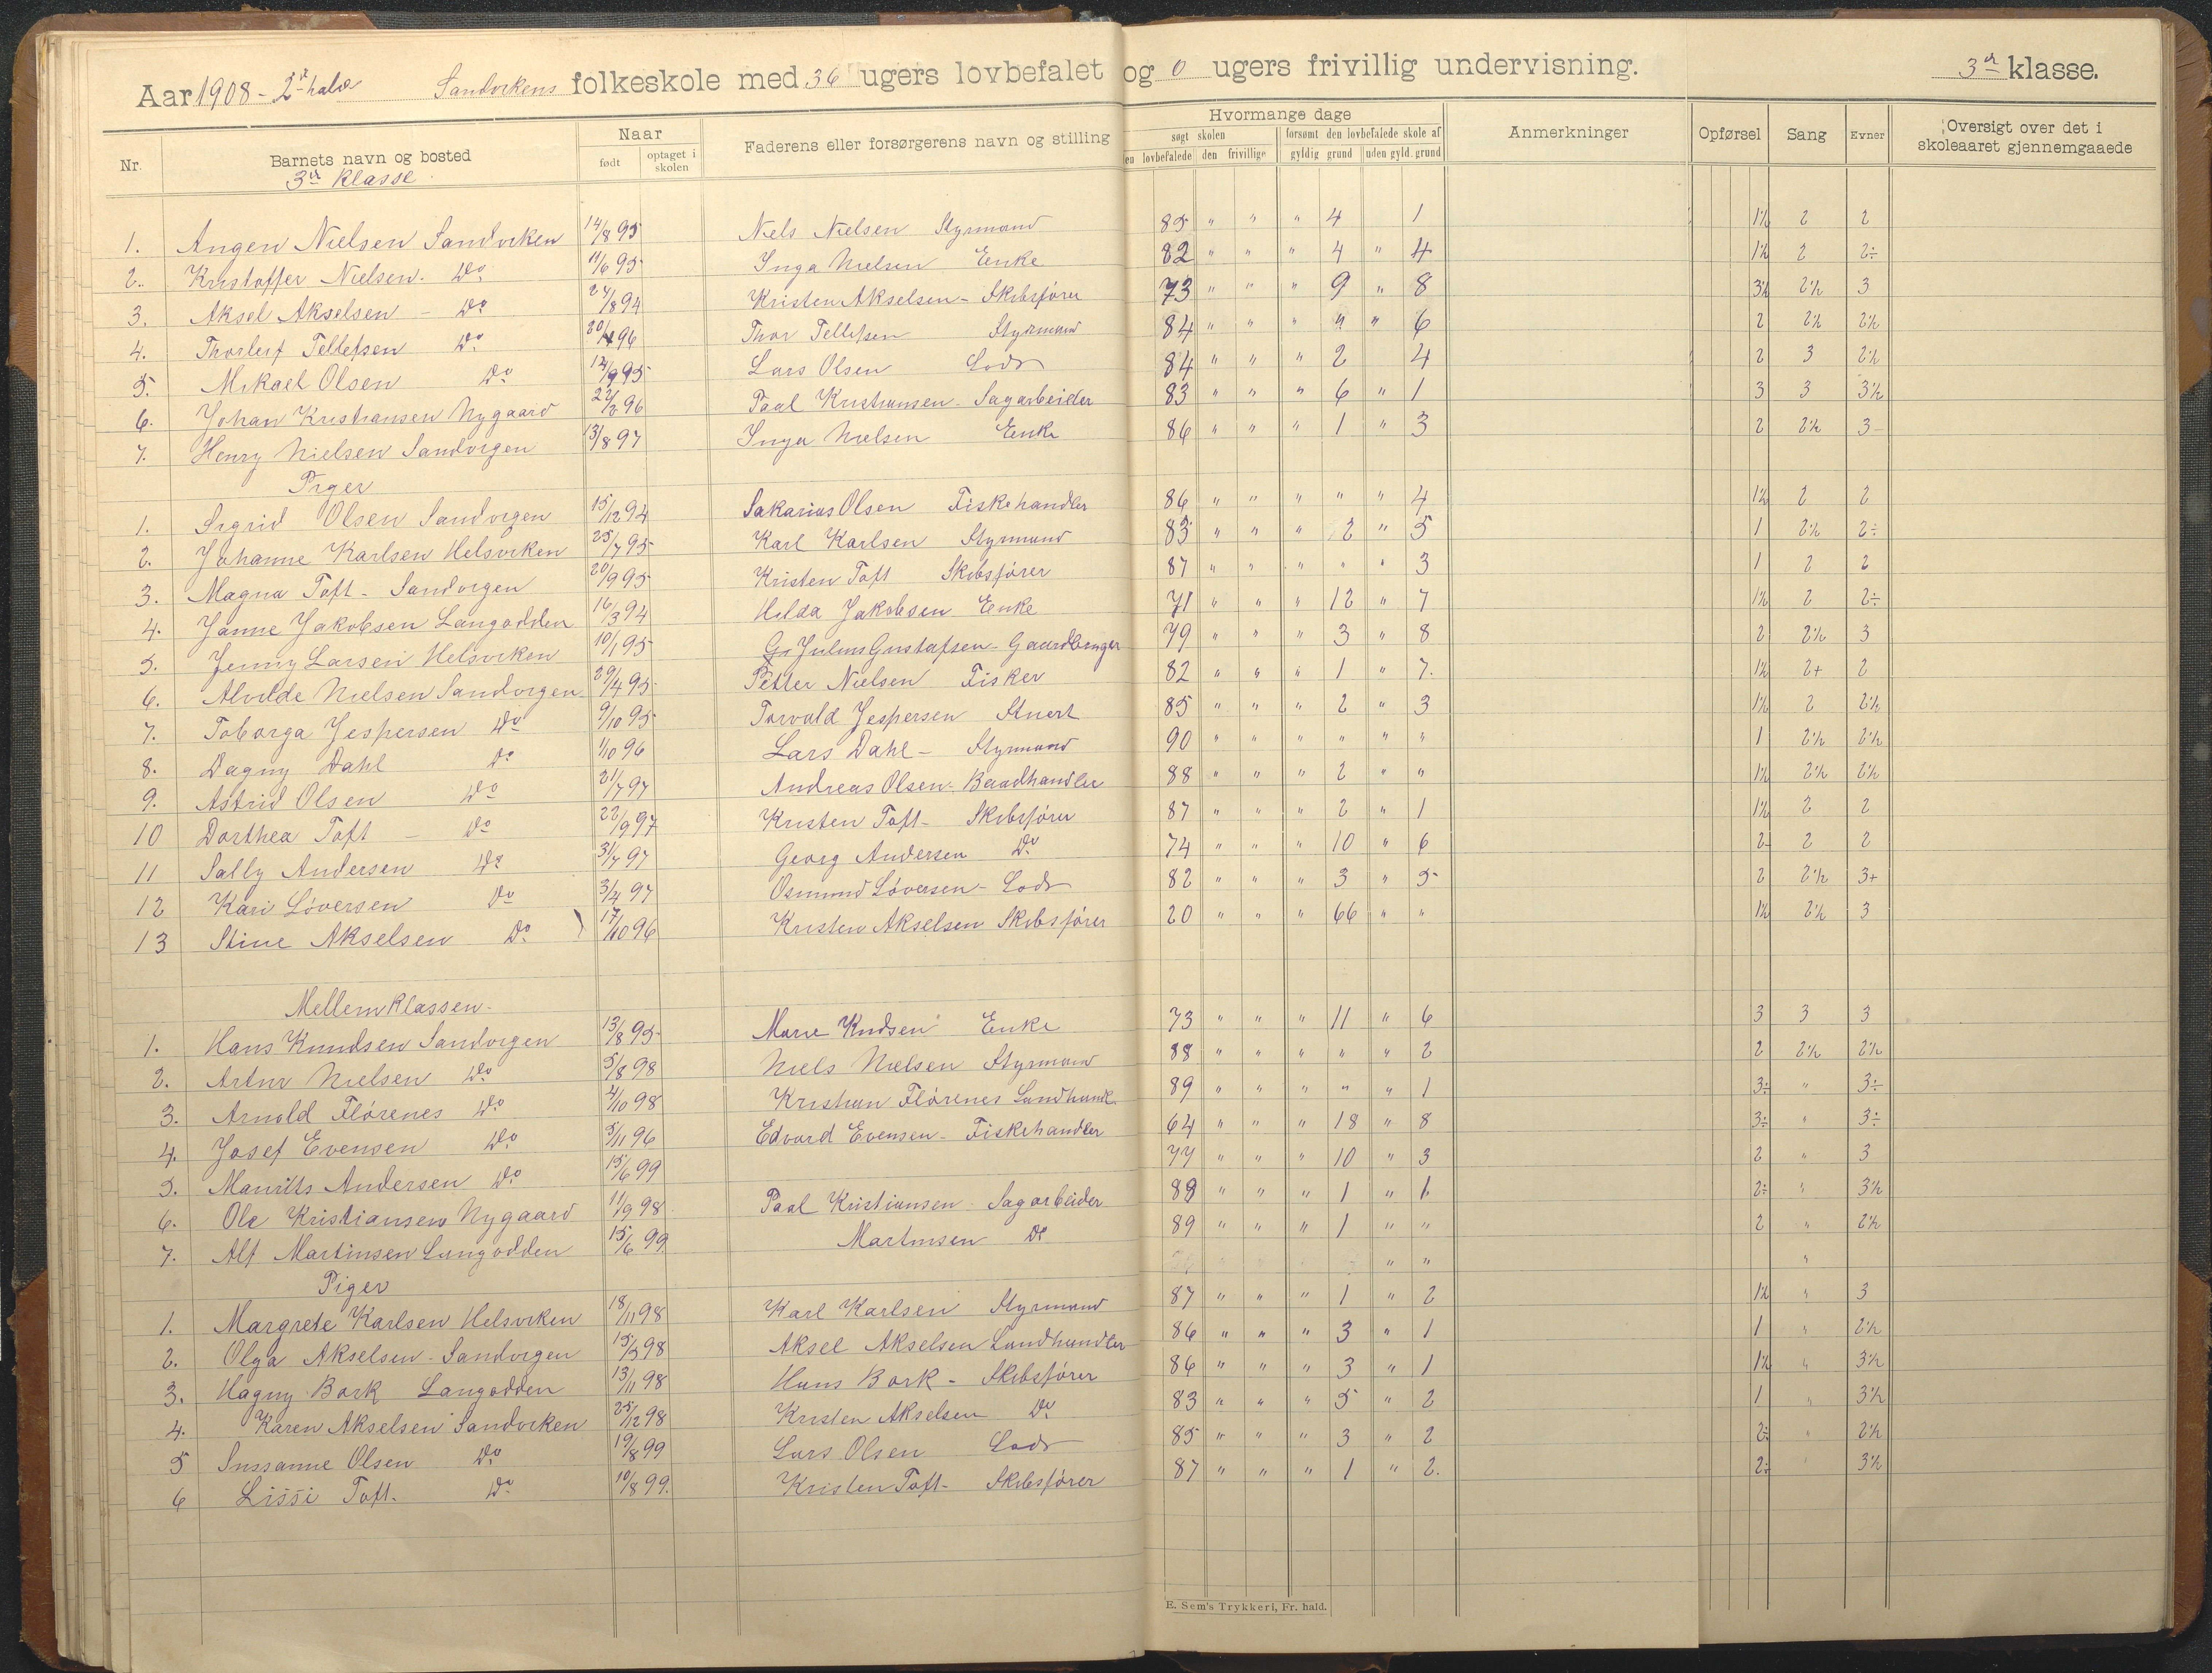 Aar 1908 - 2den halv Sandvikens folkeskole med 36 ugers lovbefalet og 0 ugers frivillig undervisning. 3die klasse.
Nr. Barnets navn og bosted Naar født optaget i skolen Faderens eller forsørgerens navn og stilling Hvormange dage søgt skolen den lovbefalede den frivillige forsømt den lovbefalede skole af gyldig grund uden gyld. grund Anmerkninger Opførsel Sang Evner Oversigt over det i skoleaaret gjennemgaaede
3die Klasse
1. Angen Nielsen Sandviken 14/8 95 Niels Nielsen Styrmand 85 " " " 4 1 1½ 2 2
2. Kristoffer Nielsen. Do 11/6 95 Inga Nielsen Enke 82 " " " 4 " 4 1½ 2 2÷
3. Aksel Akselsen - Do 24/8 94 Kristen Akselsen - Skibsfører 73 " " " 9 " 8 3½ 2½ 3
4. Thorleif Tellefsen Do 20/1 96 Thor Tellefsen Styrmand 84 " " " " " 6 2 2½ 2½
5. Mikael Olsen Do 12/9 95 Lars Olsen Lods 84 " " " 2 4 2 3 2½
6. Johan Kristiansen Nygaard 22/2 96 Paal Kristiansen - Sagarbeider 83 " " " 6 " 1 3 3 3½
7. Henry Nielsen Sandvigen 13/8 97 Inga Nielsen Enke 86 " " " 1 " 3 2 2½ 3-
Piger
1. Sigrid Olsen Sandvigen 15/12 94 Sakarias Olsen Fiskehandler 86 " " " " " 4 1½ 2 2
2. Johanne Karlsen Helsviken 25/7 95 Karl Karlsen Styrmand 83 " " " 2 " 5 1 2½ 2÷
3. Magna Toft - Sandvigen 20/9 95 Kristen Toft Skibsfører 87 " " " " " 3 1 2 2
4. Janne Jakobsen Langodden 16/3 94 Hilda Jakobsen Enke 71 " " " 12 " 7 1½ 2 2÷
5. Jenny Larsen Helsviken 10/1 95 G. Julius Gustafsen - Gaardbruger 79 " " " 3 " 8 2 2½ 3
6. Alvilde Nielsen Sandvigen 29/4 95 Petter Nielsen Fisker 82 " " " 1 " 7. 1½ 2+ 2
7. Toborga Jespersen Do 9/10 95 Torvald Jespersen Stuert 85 " " " 2 " 3 1½ 2 2½
8. Dagny Dahl Do 1/10 96 Lars Dahl - Styrmand 90 " " " " " " 1 2½ 2½
9. Astrid Olsen Do 21/7 97 Andreas Olsen - Baadhandler 88 " " " 2 " " 1½ 2½ 2½
10 Dorthea Toft - Do 22/9 97 Kristen Toft - Skibsfører 87 " " " 2 " 1 1½ 2 2
11 Sally Andersen Do 31/7 97 Georg Andersen Do 74 " " " 10 " 6 2- 2 2
12 Kari Löversen Do 3/4 97 Osmund Löversen - Lods 82 " " " 3 " 5 2 2½ 3+
13 Stine Akselsen Do 17/10 96 Kristen Akselsen Skibsfører 20 " " " 66 " " 1½ 2½ 3
Mellemklassen.
1. Hans Knudsen Sandvigen 13/8 95 Marie Kndsen Enke 73 " " " 11 " 6 3 3 3
2. Artur Nielsen Do 5/8 98 Niels Nielsen Styrmand 88 " " " " " 2 2 2½ 2½
3. Arnold Flörenes Do 4/10 98 Kristian Flörenes Landhandl. 89 " " " " " 1 3÷ " 3÷
4. Josef Evensen Do 5/11 96 Edvard Evensen - Fiskehandler 64 " " " 18 " 8 3÷ " 3÷
5. Maurits Andersen Do 15/6 99 77 " " " 10 " 3 2 " 3
6. Ole Kristiansen Nygaard 11/9 98 Paal Kristiansen - Sagarbeider 89 " " " 1 " 1 2÷ " 3½
7. Alf Martinsen Langodden 15/6 99 Martinsen Do 89 " " " 1 " " 2 " 2½
Piger " " "
1. Margrete Karlsen Helsviken 18/11 98 Karl Karlsen Styrmand 87 " " " 1 " 2 1½ " 3
2. Olga Akselsen - Sandvigen 15/3 98 Aksel Akselsen Landhandler 86 " " " 3 " 1 1 " 2½
3. Hagny Bork Langodden 13/11 98 Hans Bork - Skibsfører 86 " " " 3 " 1 1½ " 3½
4. Karen Akselsen Sandviken 25/12 98 Kristen Akselsen Do 83 " " " 5 " 2 1 " 3½
5 Sussanne Olsen Do 19/8 99 Lars Olsen Lods 85 " " " 3 " 2 2÷ " 2½
6 Lissi Toft. Do 10/8 99. Kristen Toft - Skibsfører 87 " " " 1 " 2. 2÷ " 3½
E. Sem's Trykkeri, Fr. hald.